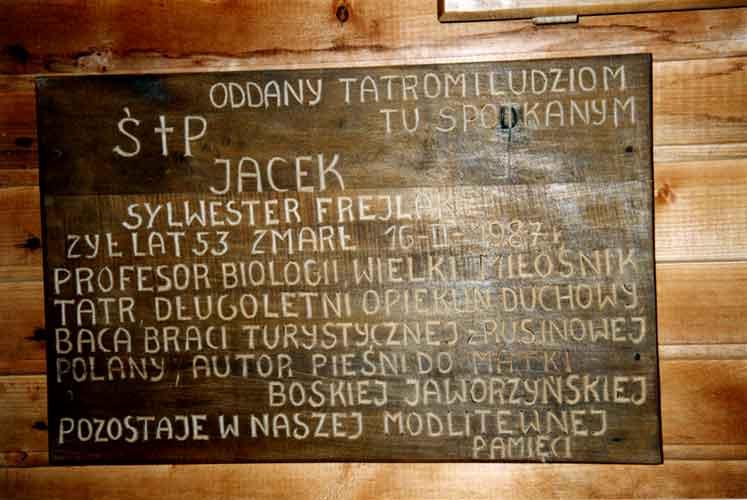 ODDANY TATROM I LUDZIOM
TU SPOTKANYM
Ś†P
JACEK
SYLWESTER FREJLAK
ŻYŁ LAT 53 ZMARŁ 16-II-1987 r
PROFESOR BIOLOGII WIELKI MIŁOŚNIK
TATR, DŁUGOLETNI OPIEKUN DUCHOWY,
BACA BRACI TURYSTYCZNEJ-RUSINOWEJ
POLANY, AUTOR PIEŚNI DO MATKI
BOSKIEJ JAWORZYŃSKIEJ
POZOSTAJE W NASZEJ MODLITEWNEJ
PAMIĘCI